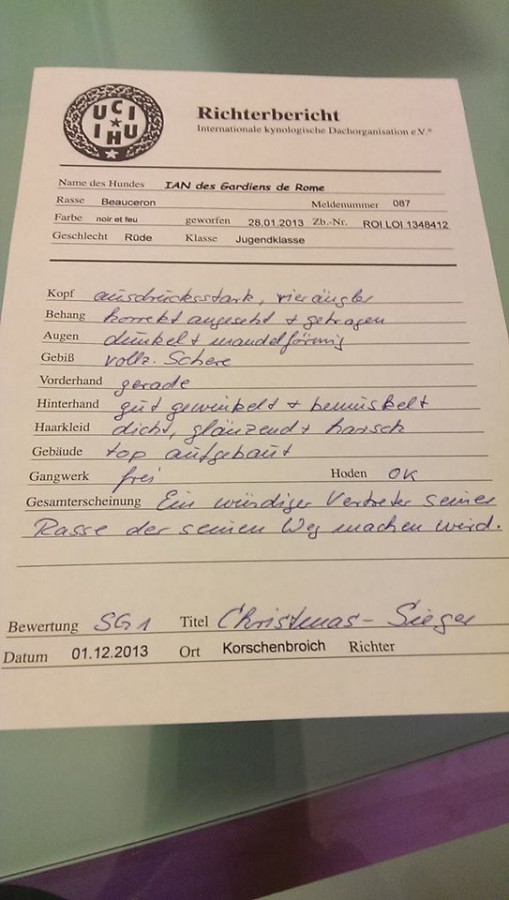 UCI
IHU
Richterbericht
Internationale kynologische Dachorganisation e.V.®
Name des Hundes IAN des Gardiens de Rome
Rasse Beauceron Meldenummer 087
Farbe noir et feu geworfen 28.01.2013 Zb.-Nr. ROI LOI 1348412
Geschlecht Rüde Klasse Jugendklasse
Kopf ausdrucksstark, vieräugler
Behang korrekt angesetzt + getragen
Augen dunkel + mandelförmig
Gebiß vollz. Schere
Vorderhand gerade
Hinterhand gut gewinkelt + bemuskelt
Haarkleid dicht, glänzend + harsch
Gebäude top aufgebaut
Gangwerk frei Hoden OK
Gesamterscheinung Ein würdiger Vertreter seiner
Rasse der seinen Weg machen wird.
Bewertung SG 1 Titel Christmas-Sieger
Datum 01.12.2013 Ort Korschenbroich Richter